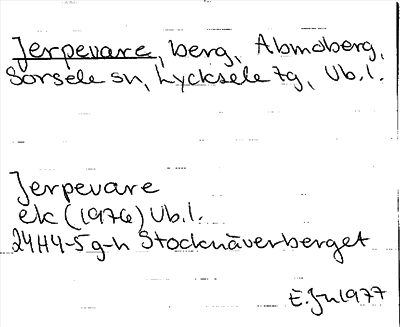 Jerpevare, berg, Abmoberg,
Sorsele sn, Lycksele tg, Vb.l.
Jerpevare
ek (1976) Vb.l.
24H4-5g-h Stocknäverberget
E.Jn 1977